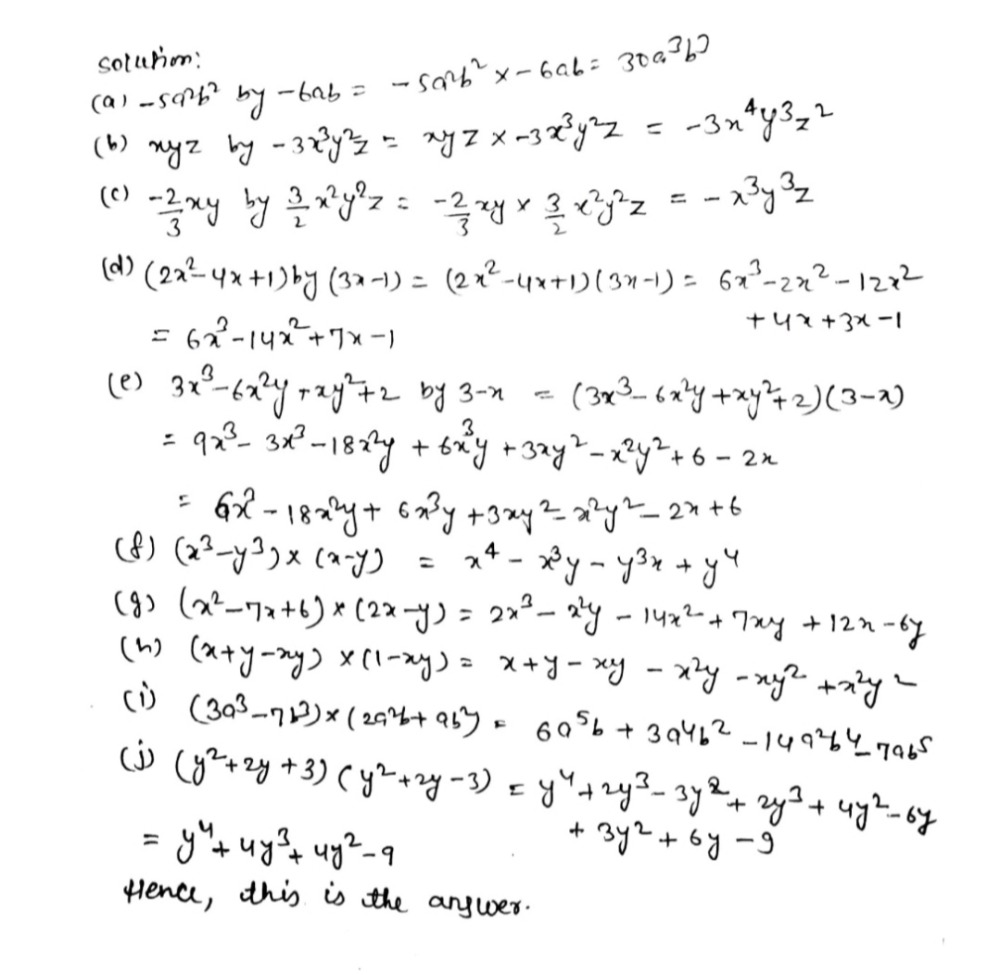 Solution:
(a) -5a²b² by -6ab = -5a²b² × -6ab = 30a³b³
(b) xyz by -3x³y²z = xyz × -3x³y²z = -3x⁴y³z²
(c) -2/3 xy by 3/2 x²y²z = -2/3 xy × 3/2 x²y²z = -x³y³z
(d) (2x²-4x+1) by (3x-1) = (2x²-4x+1)(3x-1) = 6x³-2x²-12x²
+4x+3x-1
= 6x³-14x²+7x-1
(e) 3x³-6x²y+xy²+2 by 3-x = (3x³-6x²y+xy²+2)(3-x)
= 9x³-3x³-18x²y+6x³y+3xy²-x²y²+6-2x
= 6x³-18x²y+6x³y+3xy²-x²y²-2x+6
(f) (x³-y³)×(x-y) = x⁴-x³y-y³x+y⁴
(g) (x²-7x+6)×(2x-y) = 2x³-x²y-14x²+7xy+12x-6y
(h) (x+y-xy)×(1-xy) = x+y-xy-x²y-xy²+x²y²
(i) (3a³-7b³)×(2a²b+ab²) = 6a⁵b+3a⁴b²-14a²b⁴-7ab⁵
(j) (y²+2y+3)(y²+2y-3) = y⁴+2y³-3y²+2y³+4y²-6y
+3y²+6y-9
= y⁴+4y³+4y²-9
Hence, this is the answer.